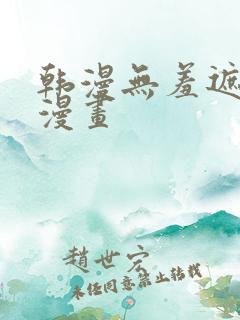 韩漫無羞遮
漫畫
趙世宏
未经同意禁止转载